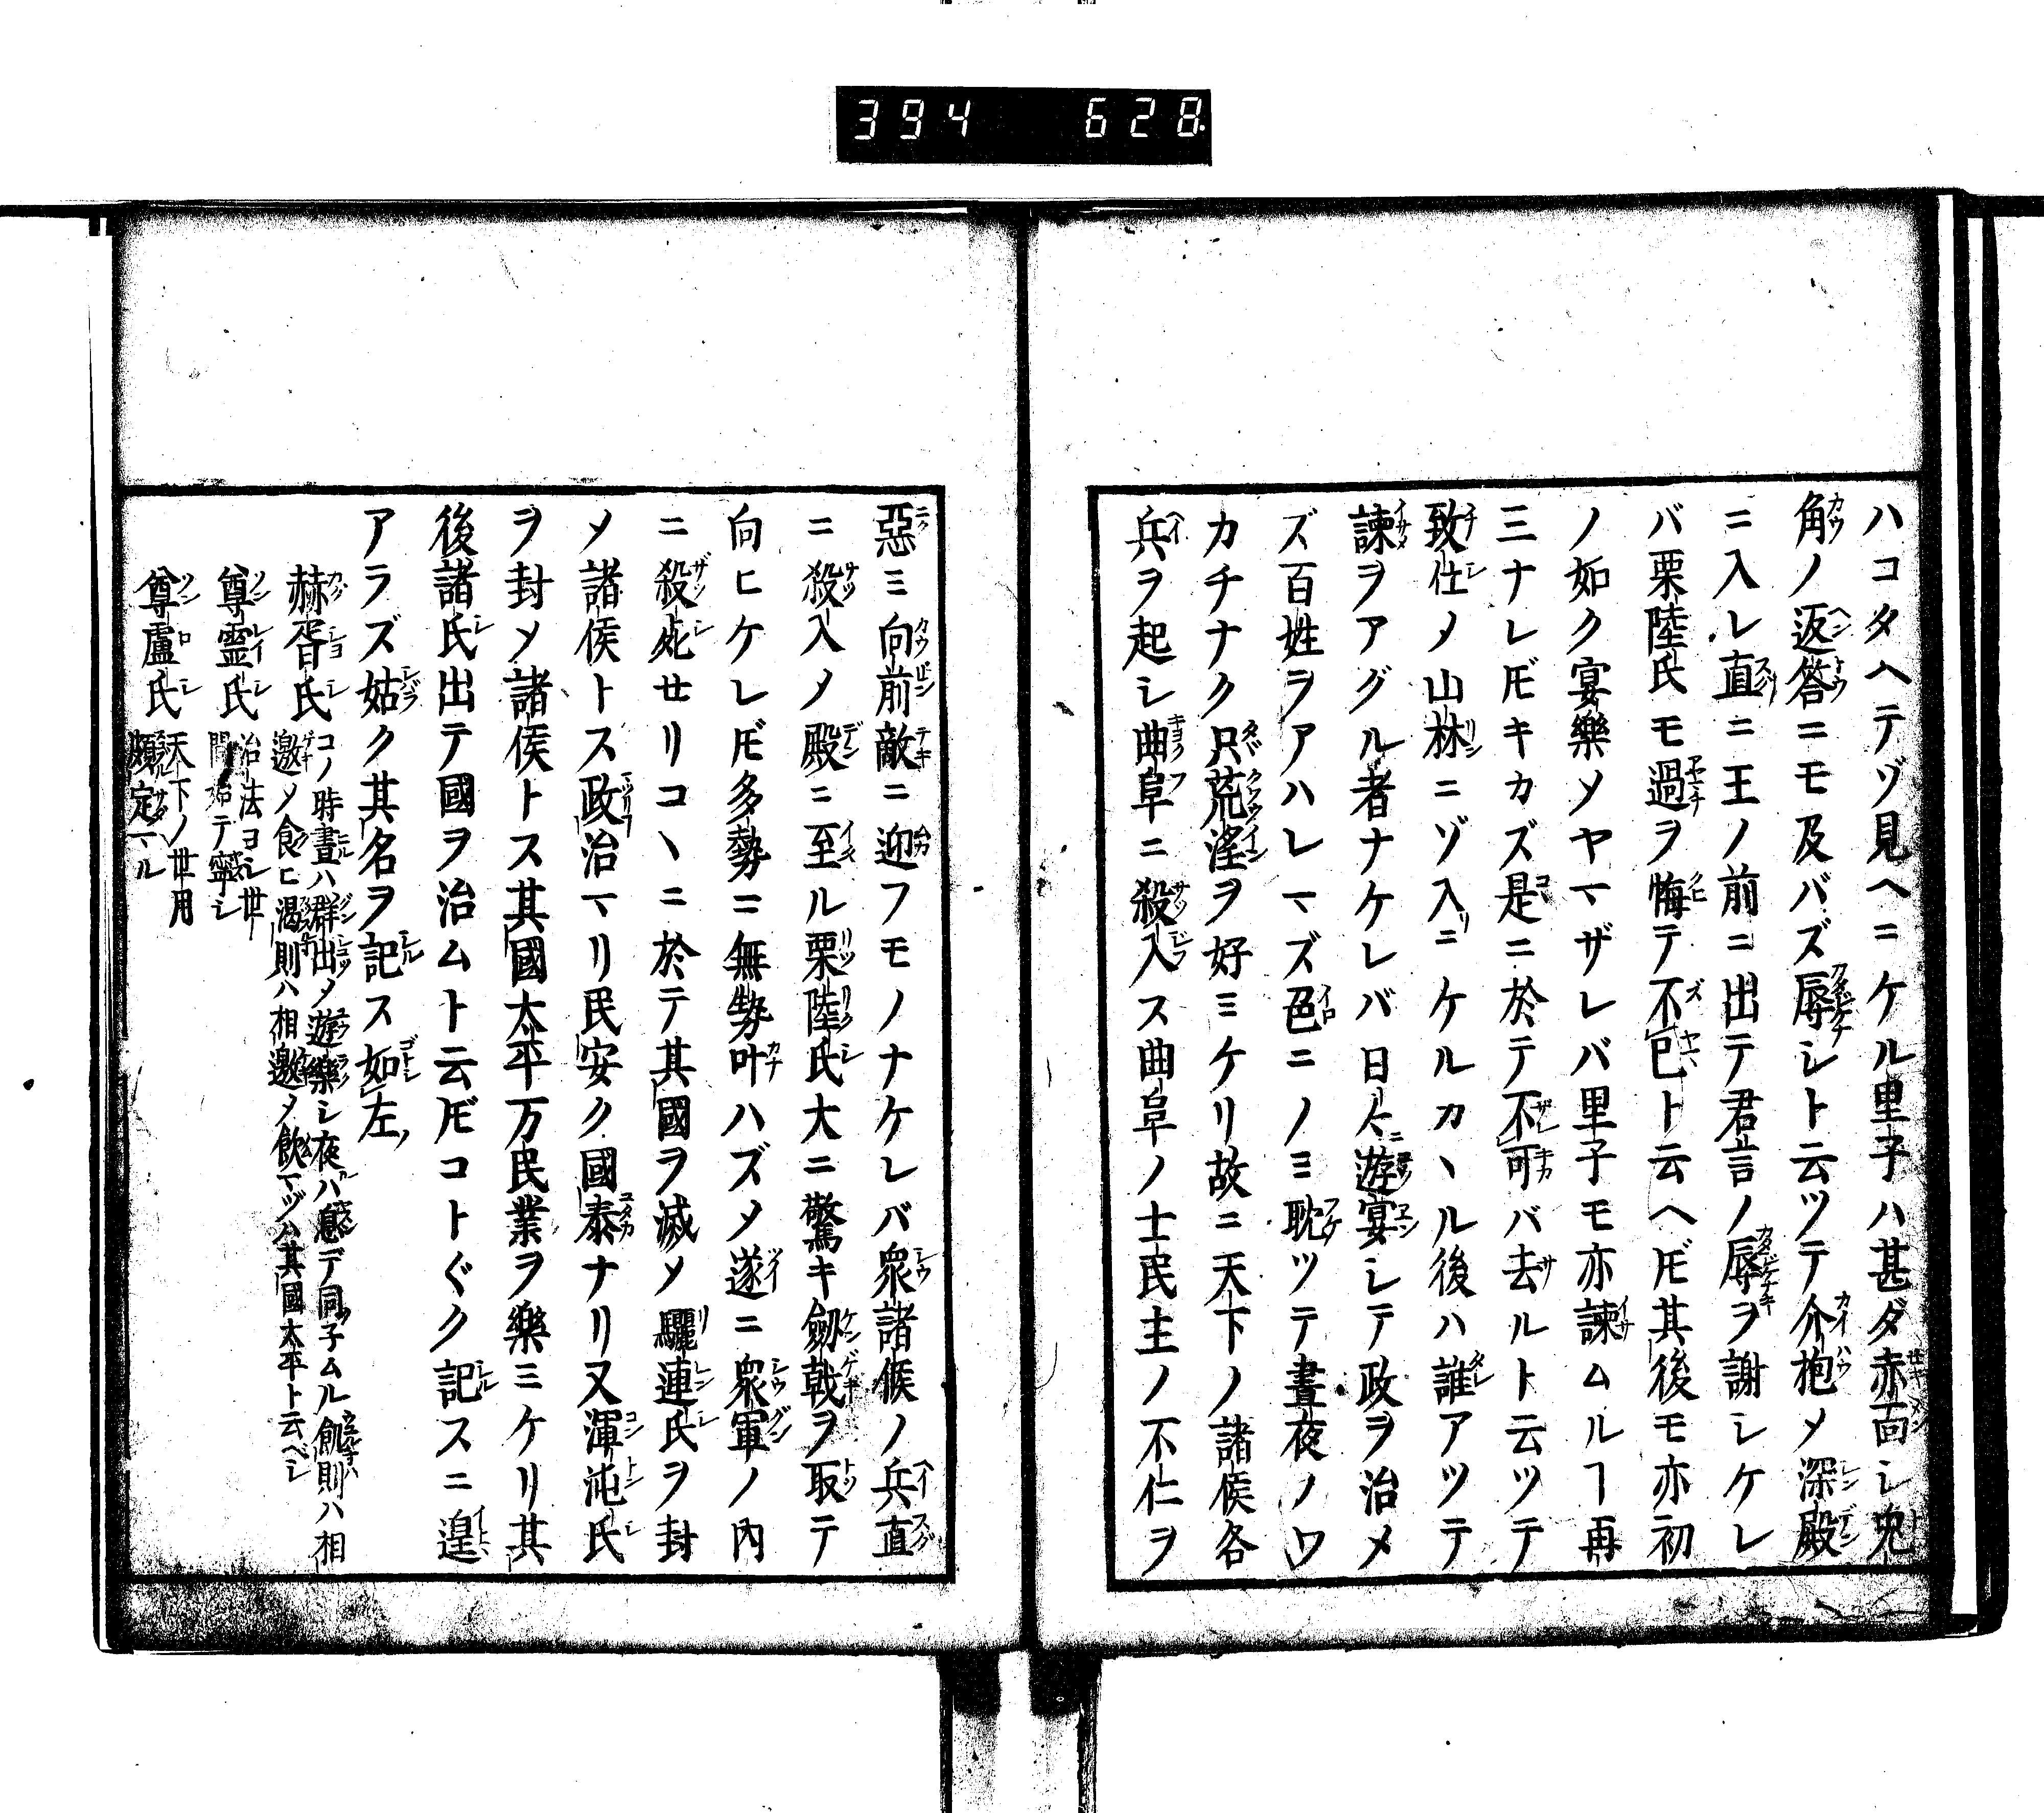 394 628
ハコタヘテゾ見ヘニケル里子ハ甚ダ赤面シ兜
角ノ返答ニモ及バズ辱シト云ツテ介抱メ深殿
ニ入レ直ニ王ノ前ニ出テ君言ノ辱ヲ謝シケレ
バ栗陸氏モ過ヲ悔テ不已ト云ヘ𪜈其後モ亦初
ノ如ク宴樂メヤマザレバ里子モ亦諫ムルヿ再
三ナレ𪜈キカズ是ニ於テ不可バ去ルト云ツテ
致仕ノ山林ニゾ入ニケルカヽル後ハ誰アツテ
諫ヲアグル者ナケレバ日々ニ遊宴シテ政ヲ治メ
ズ百姓ヲアハレマズ色ニノミ耽ツテ晝夜ノワ
カチナク只荒淫ヲ好ミケリ故ニ天下ノ諸侯各
兵ヲ起シ曲阜ニ殺入ス曲阜ノ士民主ノ不仁ヲ
惡ミ向前敵ニ迎フモノナケレバ衆諸候ノ兵直
ニ殺入メ殿ニ至ル栗陸氏大ニ驚キ劔戟ヲ取テ
向ヒケレ𪜈多勢ニ無勢叶ハズメ遂ニ衆軍ノ內
ニ殺死セリコヽニ於テ其國ヲ滅メ驪連氏ヲ封
メ諸侯トス政治マリ民安ク國泰ナリ又渾沌氏
ヲ封メ諸侯トス其國太平万民業ヲ樂ミケリ其
後諸氏出テ國ヲ治ムト云𪜈コトぐク記スニ遑
アラズ姑ク其名ヲ記ス如左
赫胥氏 コノ時晝ハ群出メ遊樂シ夜ハ息デ同子ムル飢則ハ相
邀メ食ヒ渇則ハ相邀メ飲マヅハ其國太平ト云ベシ
尊靈氏 治法ヨシ世
間始テ寧シ
尊盧氏 天下ノ世用
頗定マル